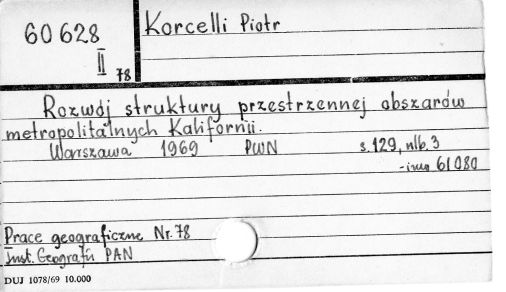 60 628
II
78
Korcelli Piotr
Rozwój struktury przestrzennej obszarów
metropolitalnych Kalifornii.
Warszawa 1969 PWN s. 129, nlb. 3
61 080
Prace geograficzne Nr. 78
Inst. Geografii PAN
DUJ 1078/69 10.000